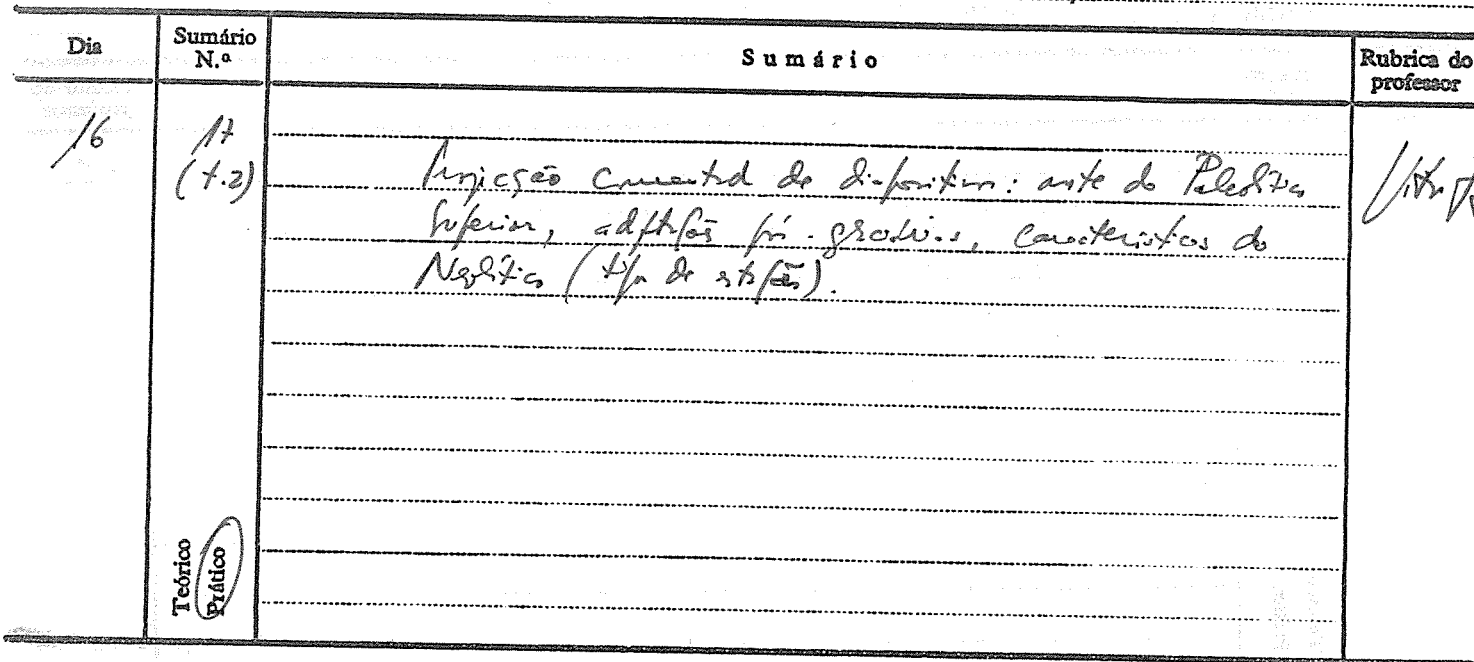 Dia
Sumário N.º
Sumário
Rubrica do professor
16
17
(t.2)
Projecção comentada de diapositivos: arte do Paleolítico
Superior, adaptações pós-glaciárias, características do
Neolítico (tipo de estações).
Teórico
Prático